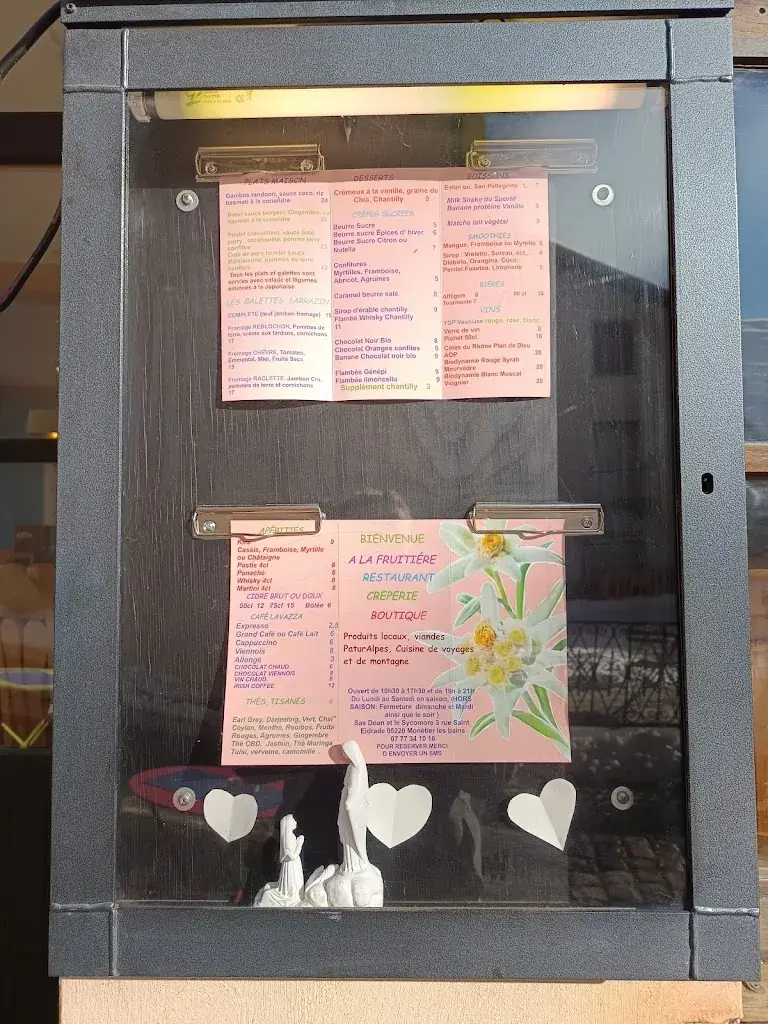 PLATS MAISON
Gambas tandoori, sauce coco, riz
basmati à la coriandre 24
Bœuf sauce teriyaki, Gingembre, riz
basmati à la coriandre
Poulet croustillant, sauce Saté
curry, cacahuète, pomme terre
confites
Tous les plats et galettes sont
servies avec salade et légumes
émincés à la Japonaise
LES GALETTES SARRAZIN
COMPLÈTE (œuf jambon fromage) 15
Fromage REBLOCHON, Pommes de
terre, crème aux lardons, cornichons
17
Fromage CHÈVRE, Tomates,
Emmental, Miel, Fruits Secs
15
Fromage RACLETTE, Jambon Cru,
pommes de terre et cornichons
17
DESSERTS
Crémeux à la vanille, graine de
Chia, Chantilly 9
CRÊPES SUCRÉES
Beurre Sucre 5
Beurre sucre Épices d' hiver 6
Beurre Sucre Citron ou
Nutella 7
Confitures
Myrtilles, Framboise,
Abricot, Agrumes 5
Caramel beurre salé 6
Sirop d'érable chantilly 9
Flambé Whisky Chantilly
11
Chocolat Noir Bio 8
Chocolat Oranges confites 9
Banane Chocolat noir bio 9
Flambée Génépi 9
Flambée limoncello 9
Supplément chantilly 3
BOISSONS
Evian ou San Pellegrino 1L 7
Milk Shake du Sportif
Banane protéine Vanille 8
Matcha lait végétal 9
SMOOTHIES
Mangue, Framboise ou Myrtille 8
Sirop : Violette, Sureau, ect,.. 4
Diabolo, Orangina, Coca,
Perrier, Fuzetea, Limonade 5
BIÈRES
Affligem 6 50 cl 10
Tourmente 7
VINS
Vaucluse rouge, rose, blanc
Verre de vin 8
Pichet 50cl 16
Côtes du Rhône Plan de Dieu
AOP 20
Biodynamie Rouge Syrah
Mourvèdre 20
Biodynamie Blanc Muscat
Viognier 20
APÉRITIFS
Kirs 9
Cassis, Framboise, Myrtille
ou Châtaigne
Pastis 4cl 8
Panaché 6
Whisky 4cl 8
Martini 4cl 8
CIDRE BRUT OU DOUX
50cl 12 75cl 15 Bolée 6
CAFÉ LAVAZZA
Expresso 2,5
Grand Café ou Café Lait 6
Cappuccino 6
Viennois 8
Allongé 3
CHOCOLAT CHAUD. 6
CHOCOLAT VIENNOIS 8
VIN CHAUD. 8
IRISH COFFEE 12
THÉS, TISANES 6
Earl Grey, Darjeeling, Vert, Chaï
Ceylan, Menthe, Rooïbos, Fruits
Rouges, Agrumes, Gingembre
Thé CBD, Jasmin, Thé Moringa
Tulsi, verveine, camomille ..
BIENVENUE
A LA FRUITIÉRE
RESTAURANT
CREPERIE
BOUTIQUE
Produits locaux, viandes
PaturAlpes, Cuisine de voyages
et de montagne
Ouvert de 10h30 à 17h30 et de 19h à 21H
Du Lundi au Samedi en saison, (HORS
SAISON: Fermeture dimanche et Mardi
ainsi que le soir )
Sas Doan et le Sycomore 3 rue Saint
Eldrade 05220 Monêtier les bains
07 77 34 10 16
POUR RESERVER MERCI
D ENVOYER UN SMS